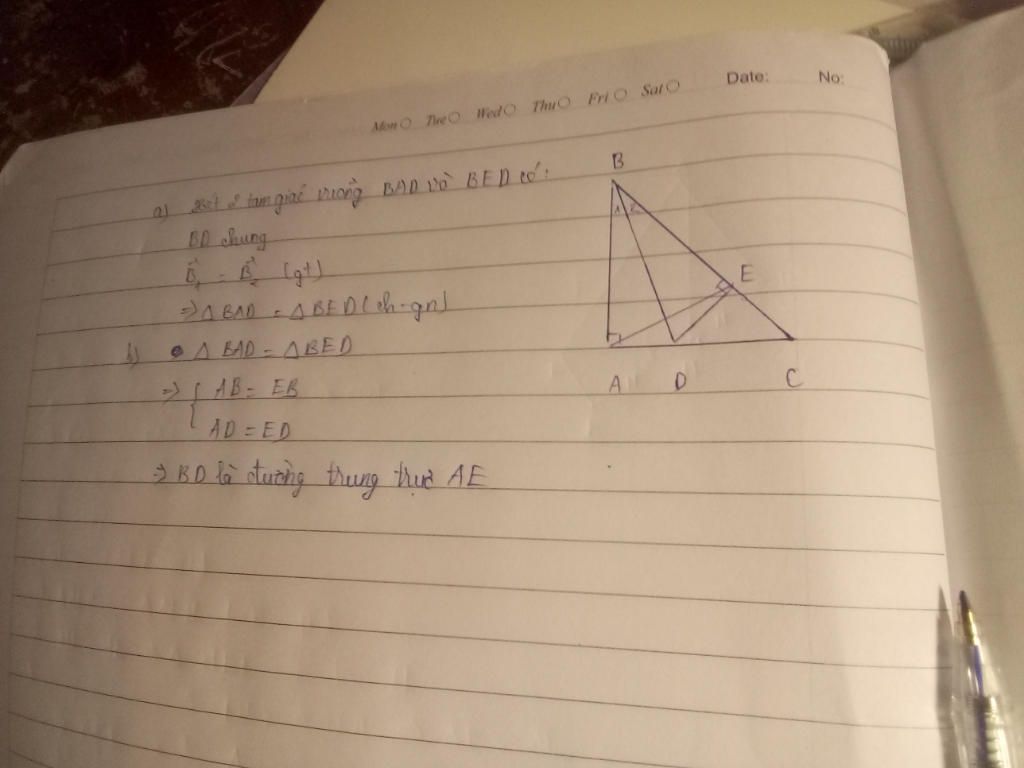 Mon Tue Wed Thu Fri Sat Date: No:
a) Xét 2 tam giác vuông BAD và BED có:
BD chung
B̂₁ = B̂₂ (gt)
⇒ △ BAD = △ BED (ch-gn)
b) △ BAD = △ BED
⇒ { AB = EB
AD = ED
⇒ BD là đường trung trực AE
B
1 2
E
A D C